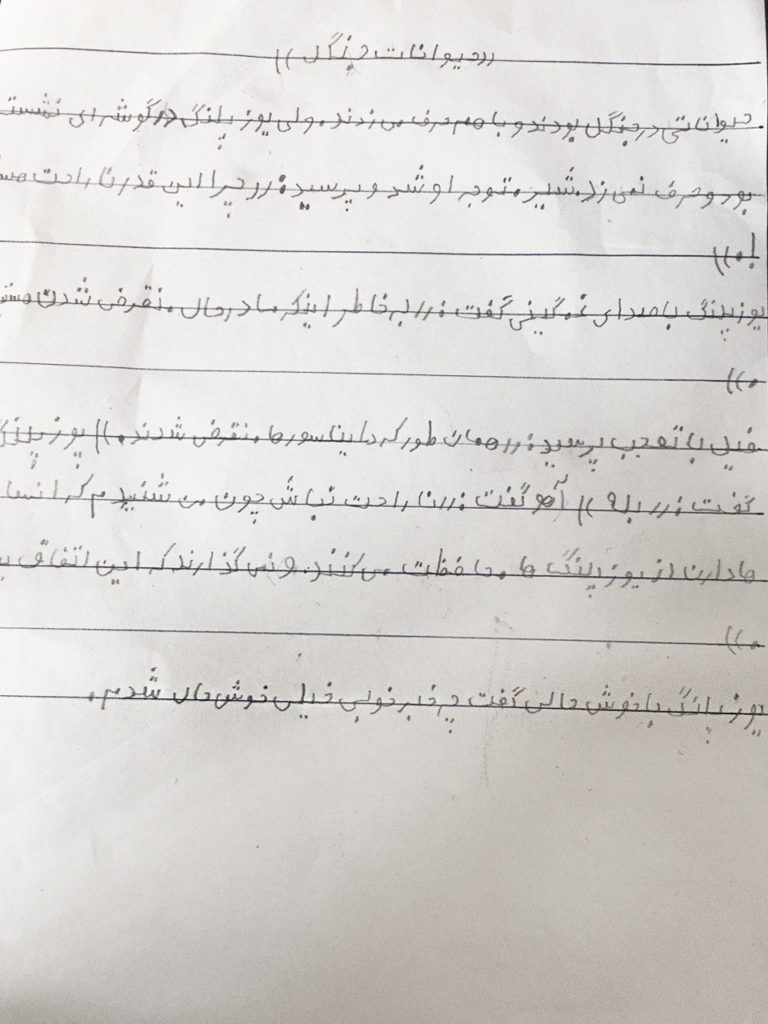 ((حیوانات جنگل))
حیواناتی در جنگل بودند و با هم حرف می زدند. ولی یوزپلنگ در گوشه ای نشسته
بود و حرف نمی زد. شیر متوجه او شد و پرسید: ((چرا این قدر ناراحت
!.))
یوزپلنگ با صدای غمگینی گفت: ((به خاطر اینکه ما در حال منقرض شدن
.))
فیل با تعجب پرسید: ((همان طور که دایناسورها منقرض شدند.)) یوزپلنگ
گفت: ((بله)) آهو گفت: ((ناراحت نباش چون من شنیدم که
ها دارند از یوزپلنگ ها محافظت می کنند. و نمی گذارند که این اتفاق
.))
یوزپلنگ با خوش حالی گفت چه خبر خوبی خیلی خوش حال شدم.